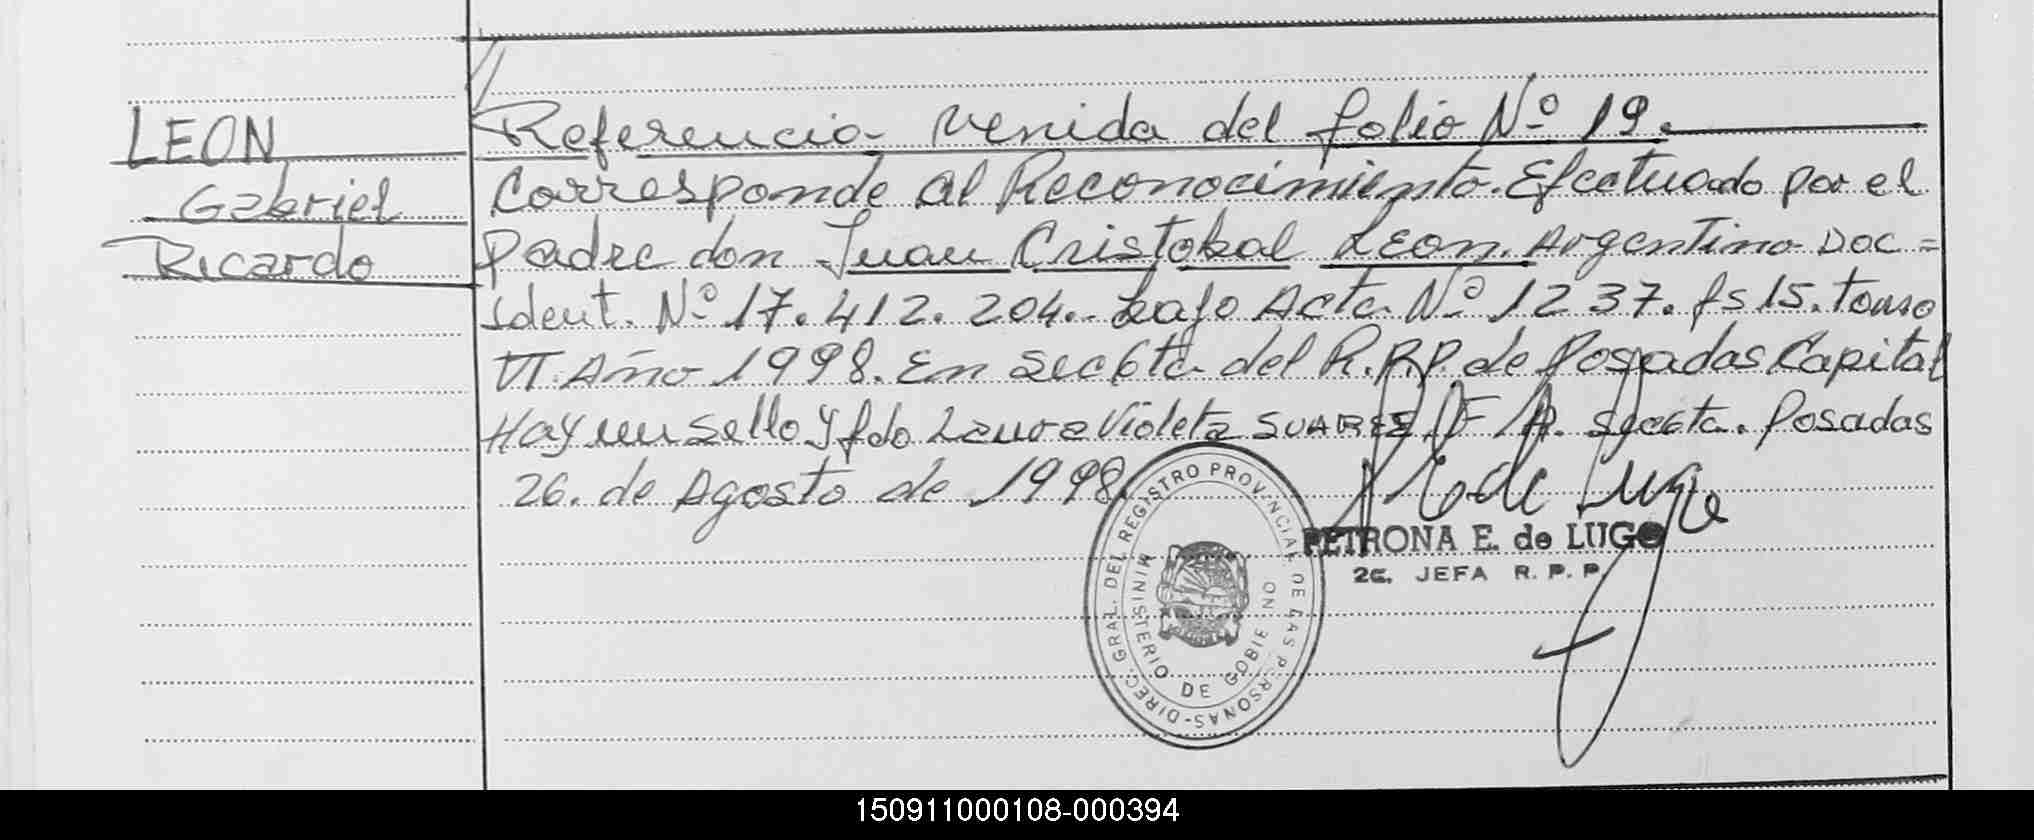 LEON
Gabriel
Ricardo
Referencia venida del folio Nº 19.
Corresponde al Reconocimiento. Efectuado por el
padre don Juan Cristobal Leon. Argentino Doc =
Ident. Nº 17.412.204.- bajo Acta Nº 1237. fs 15. tomo
VI. Año 1998. En Sec 6ta del R.P.P. de Posadas Capital
Hay un sello y fdo Laura Violeta SUAREZ. Sec 6ta. Posadas
26. de Agosto de 1998
PETRONA E. de LUGO
2c. JEFA R. P. P.
DIREC. GRAL. DEL REGISTRO PROVINCIAL DE LAS PERSONAS-
MINISTERIO DE GOBIERNO
150911000108-000394